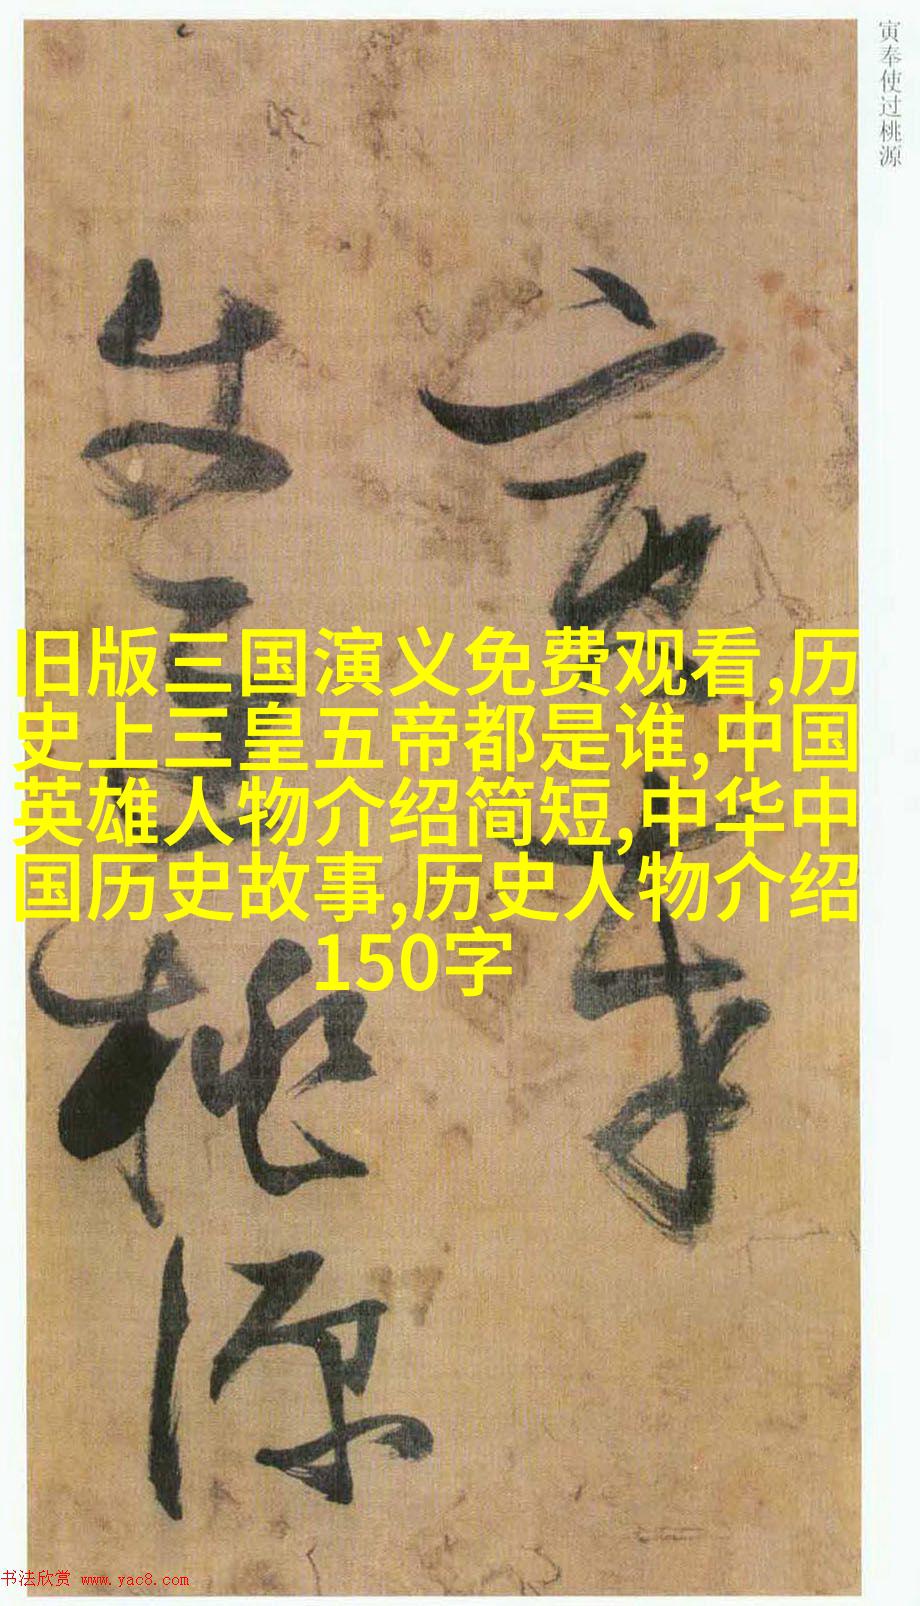 寅奉使过桃源
寅奉
使过桃源
旧版三国演义免费观看,历
史上三皇五帝都是谁,中国
英雄人物介绍简短,中华中
国历史故事,历史人物介绍
150字
书法欣赏 www.yac8.com